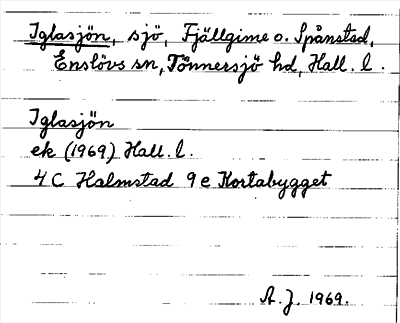 Iglasjön, sjö, Fjällgime o. Spånstad,
Enslövs sn, Tönnersjö hd, Hall. l.
Iglasjön
ek (1969) Hall. l.
4 C Halmstad 9 e Kortabygget
A. J. 1969.